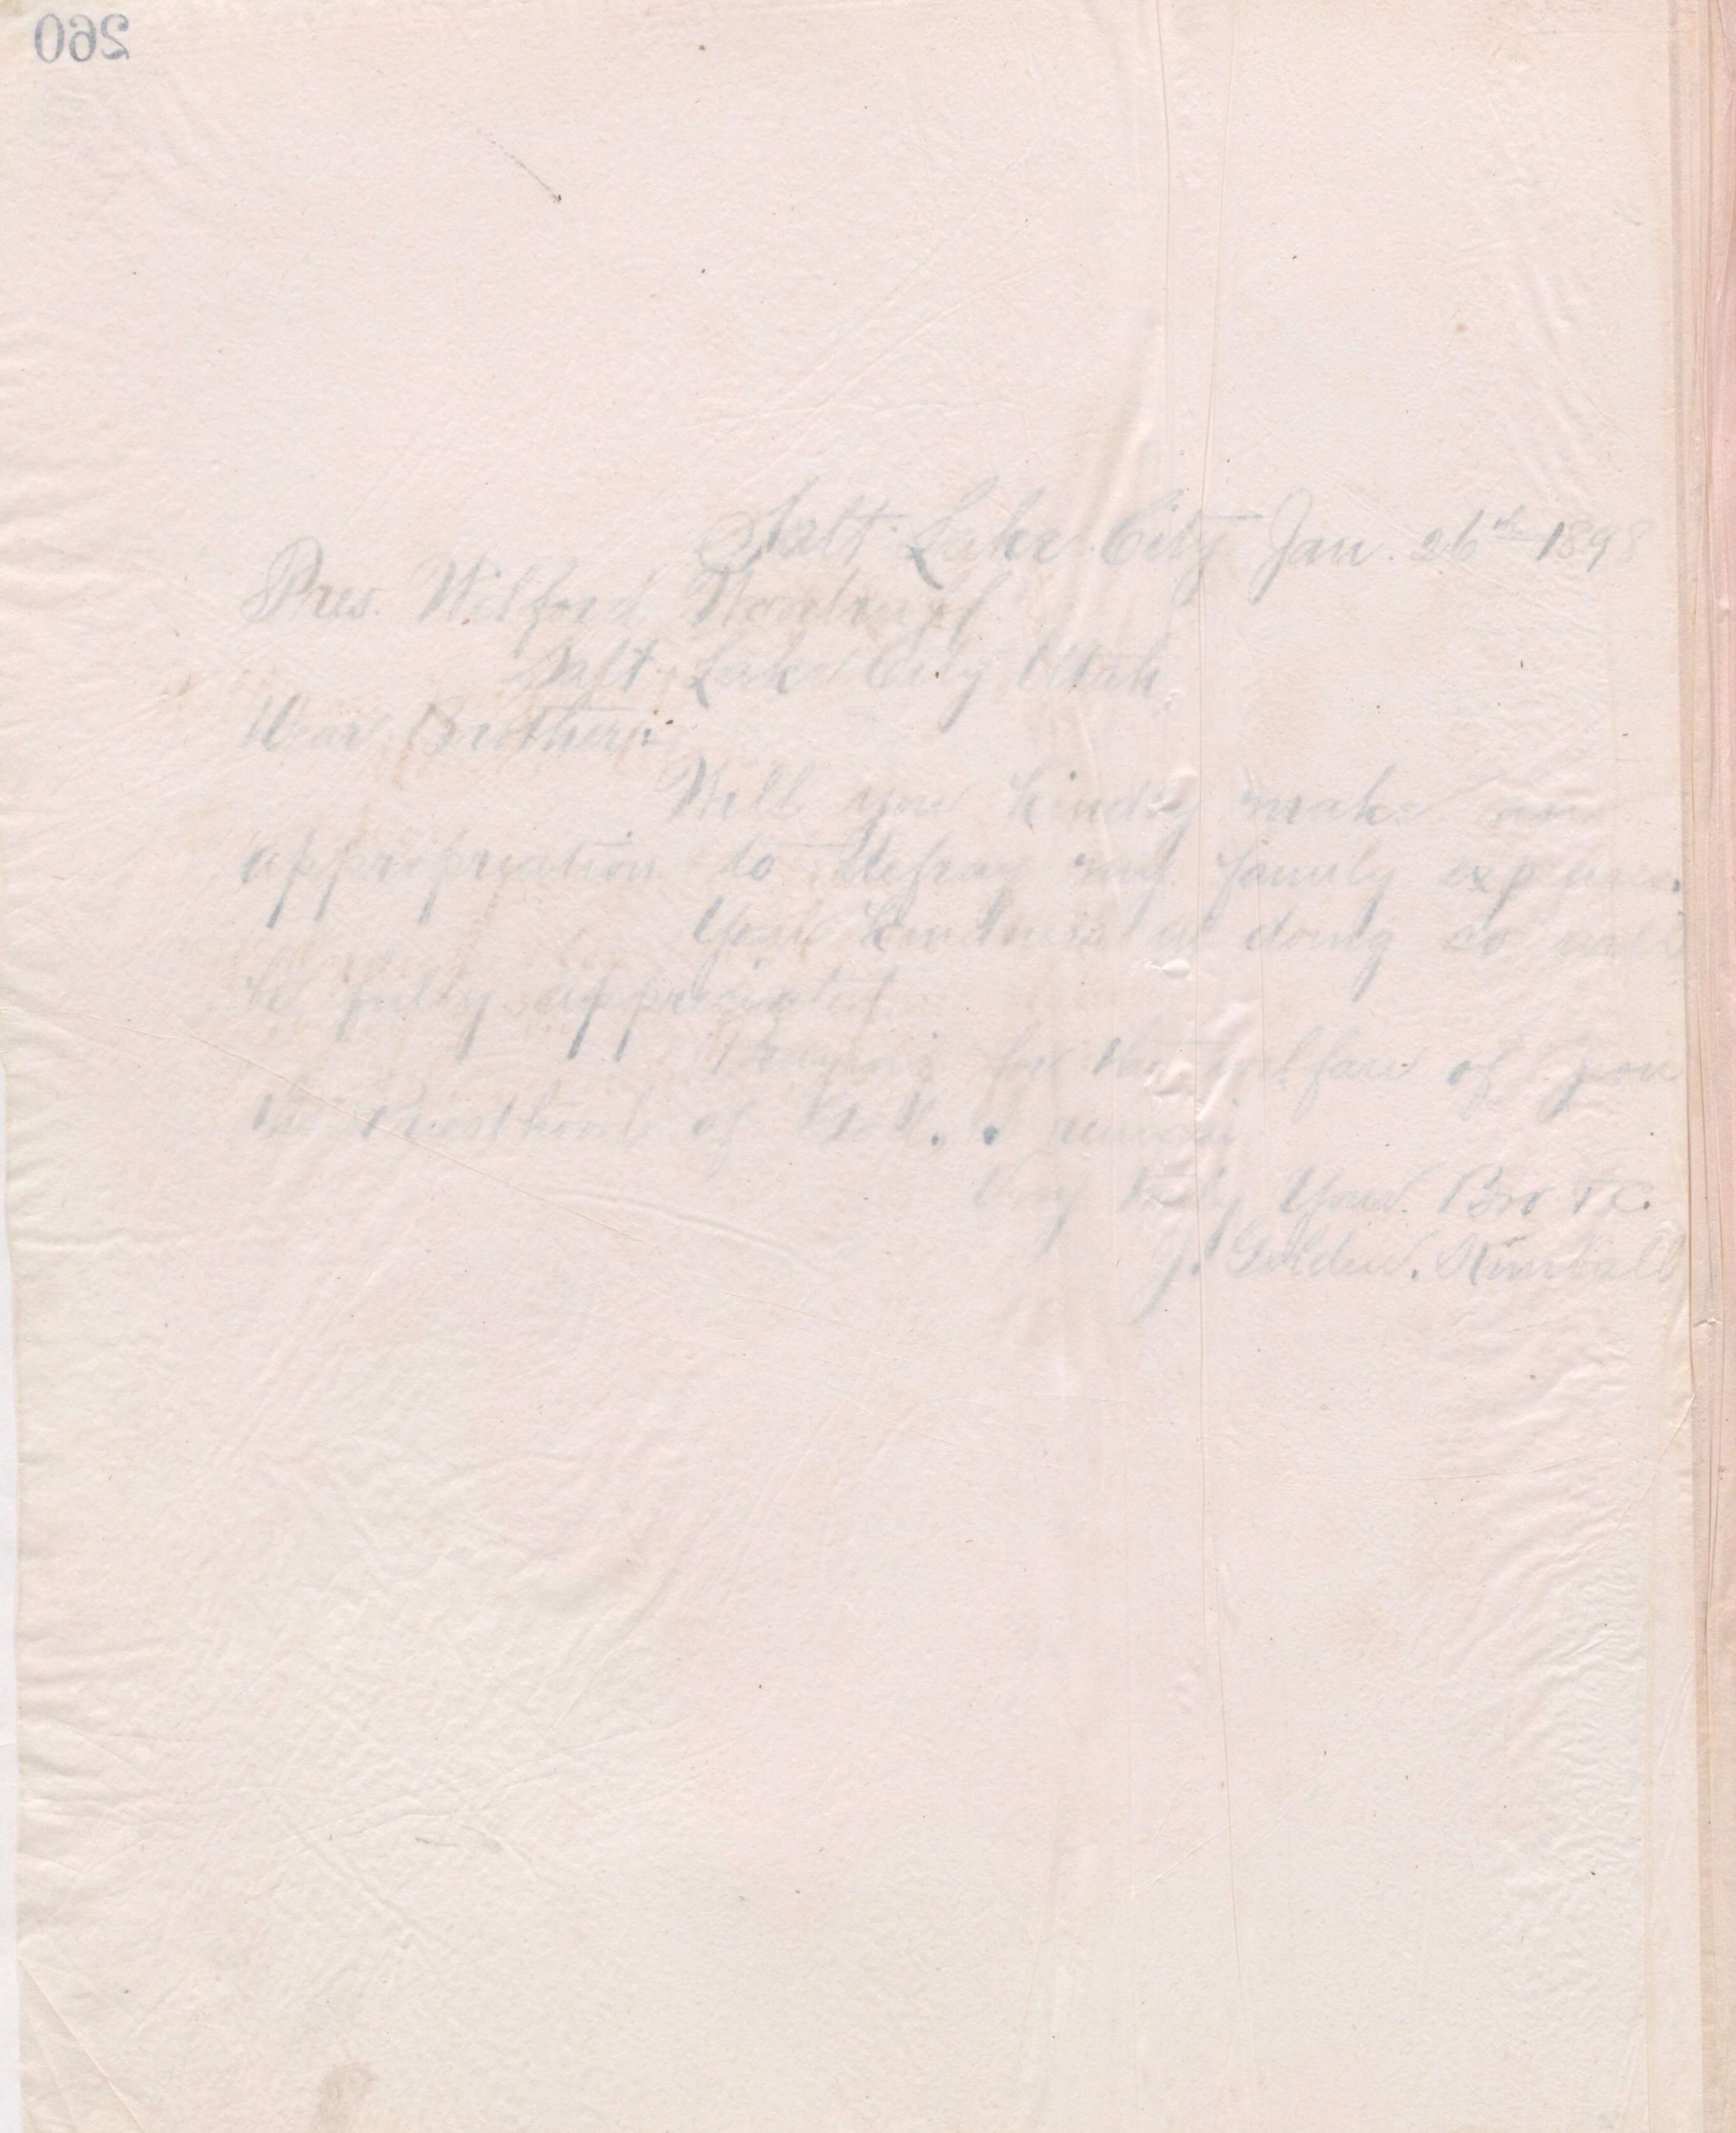 260
Salt Lake City Jan. 26th 1898
Pres. Wilford Woodruff
Salt Lake City Utah
Dear Brother:
Will you kindly make an
appropriation to defray my family expenses.
Your kindness in doing so will
be fully appreciated
Praying for the welfare of Zion
the Priesthood of God. I remain
Very truly Your Bro
J. Golden Kimball